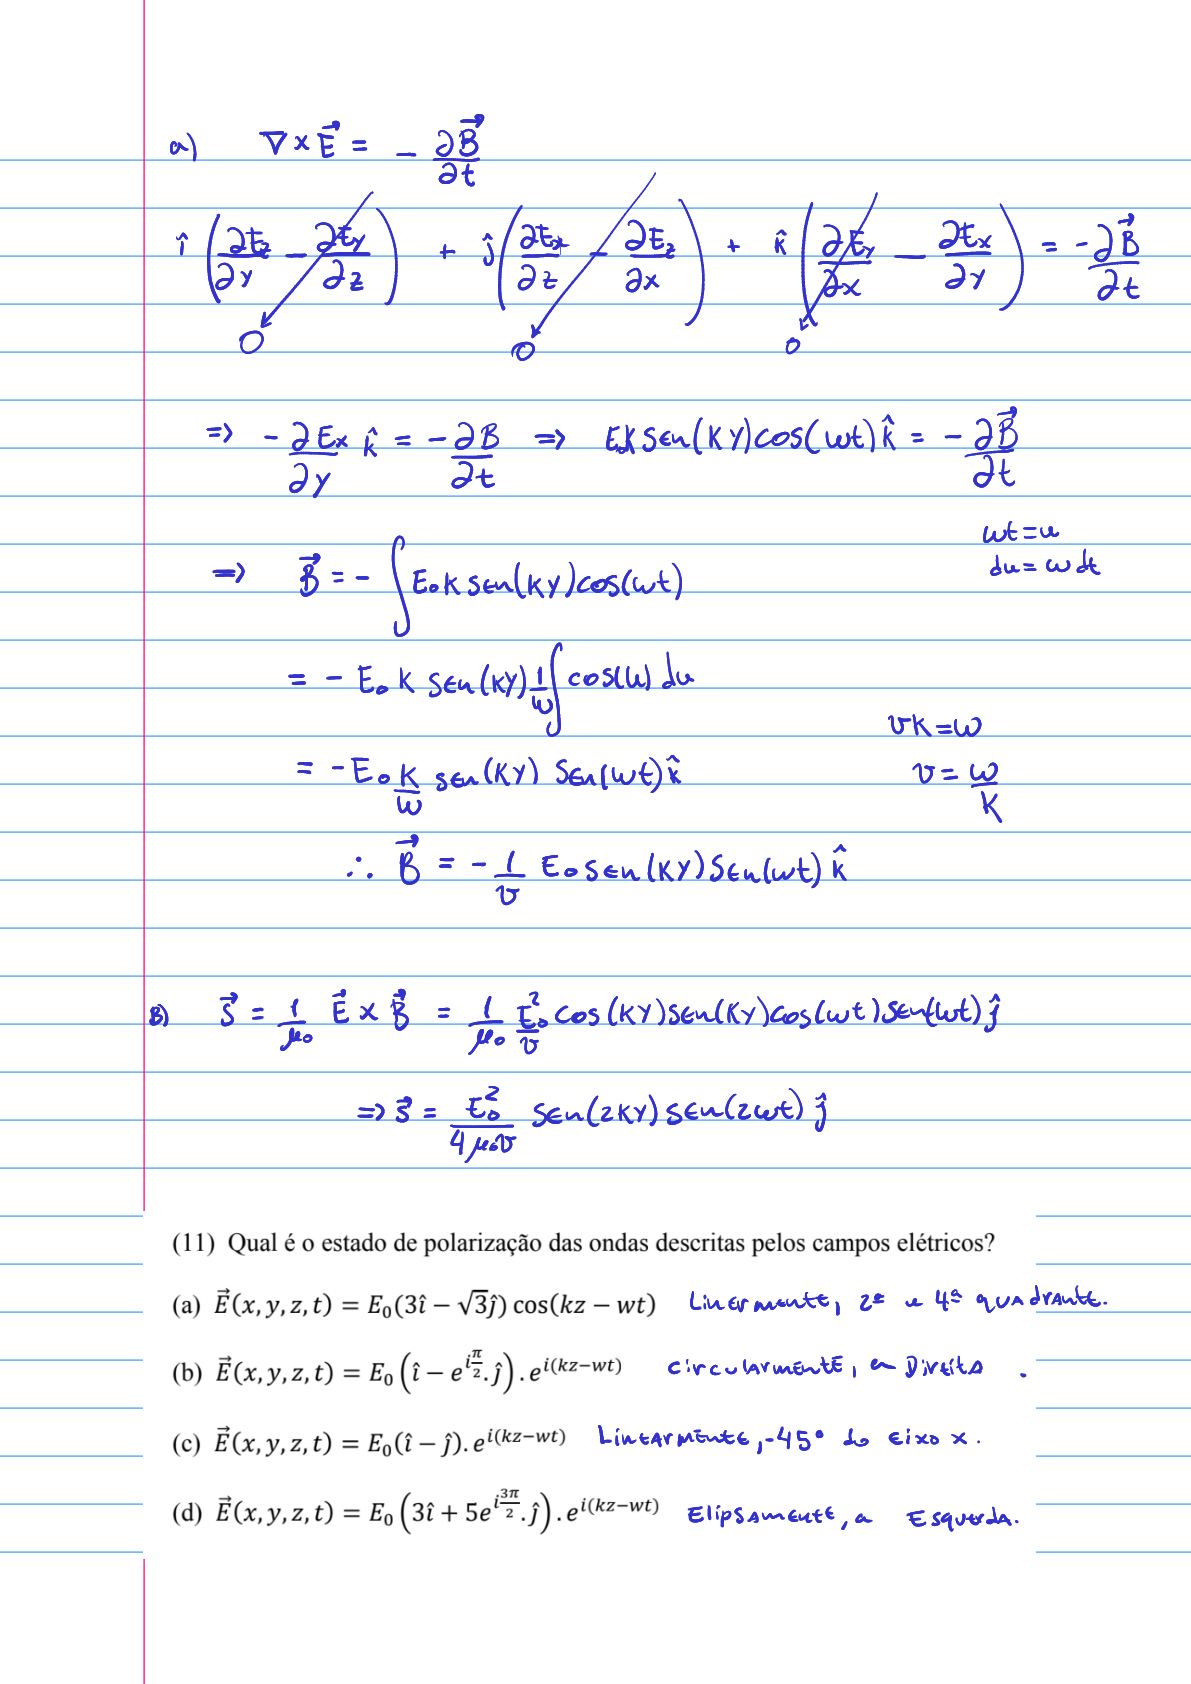 a) ∇ × E⃗ = - ∂B⃗/∂t
î (∂Ez/∂y - ∂Ey/∂z) + ĵ (∂Ex/∂z - ∂Ez/∂x) + k̂ (∂Ey/∂x - ∂Ex/∂y) = - ∂B⃗/∂t
0 0 0
=> - ∂Ex/∂y k̂ = - ∂B/∂t => E₀K sen(Ky)cos(wt) k̂ = - ∂B⃗/∂t
wt = u
du = w dt
=> B⃗ = - ∫ E₀K sen(Ky)cos(wt)
= - E₀ K sen(Ky) 1/w ∫ cos(u) du
vK = w
= - E₀ K/w sen(Ky) sen(wt) k̂
v = w/K
∴ B⃗ = - 1/v E₀ sen(Ky) sen(wt) k̂
B) S⃗ = 1/μ₀ E⃗ × B⃗ = 1/μ₀ E₀²/v cos(Ky)sen(Ky)cos(wt)sen(wt) ĵ
=> S⃗ = E₀²/4μ₀v sen(2Ky) sen(2wt) ĵ
(11) Qual é o estado de polarização das ondas descritas pelos campos elétricos?
(a) E⃗(x, y, z, t) = E₀(3î − √3ĵ) cos(kz − wt) Linermente, 2º e 4º quadrante.
(b) E⃗(x, y, z, t) = E₀ (î − e^{iπ/2}. ĵ) . e^{i(kz−wt)} circularmente, a Direita .
(c) E⃗(x, y, z, t) = E₀(î − ĵ). e^{i(kz−wt)} Linearmente, -45° do eixo x.
(d) E⃗(x, y, z, t) = E₀ (3î + 5e^{i3π/2}. ĵ) . e^{i(kz−wt)} Elipsamente, a Esquerda.